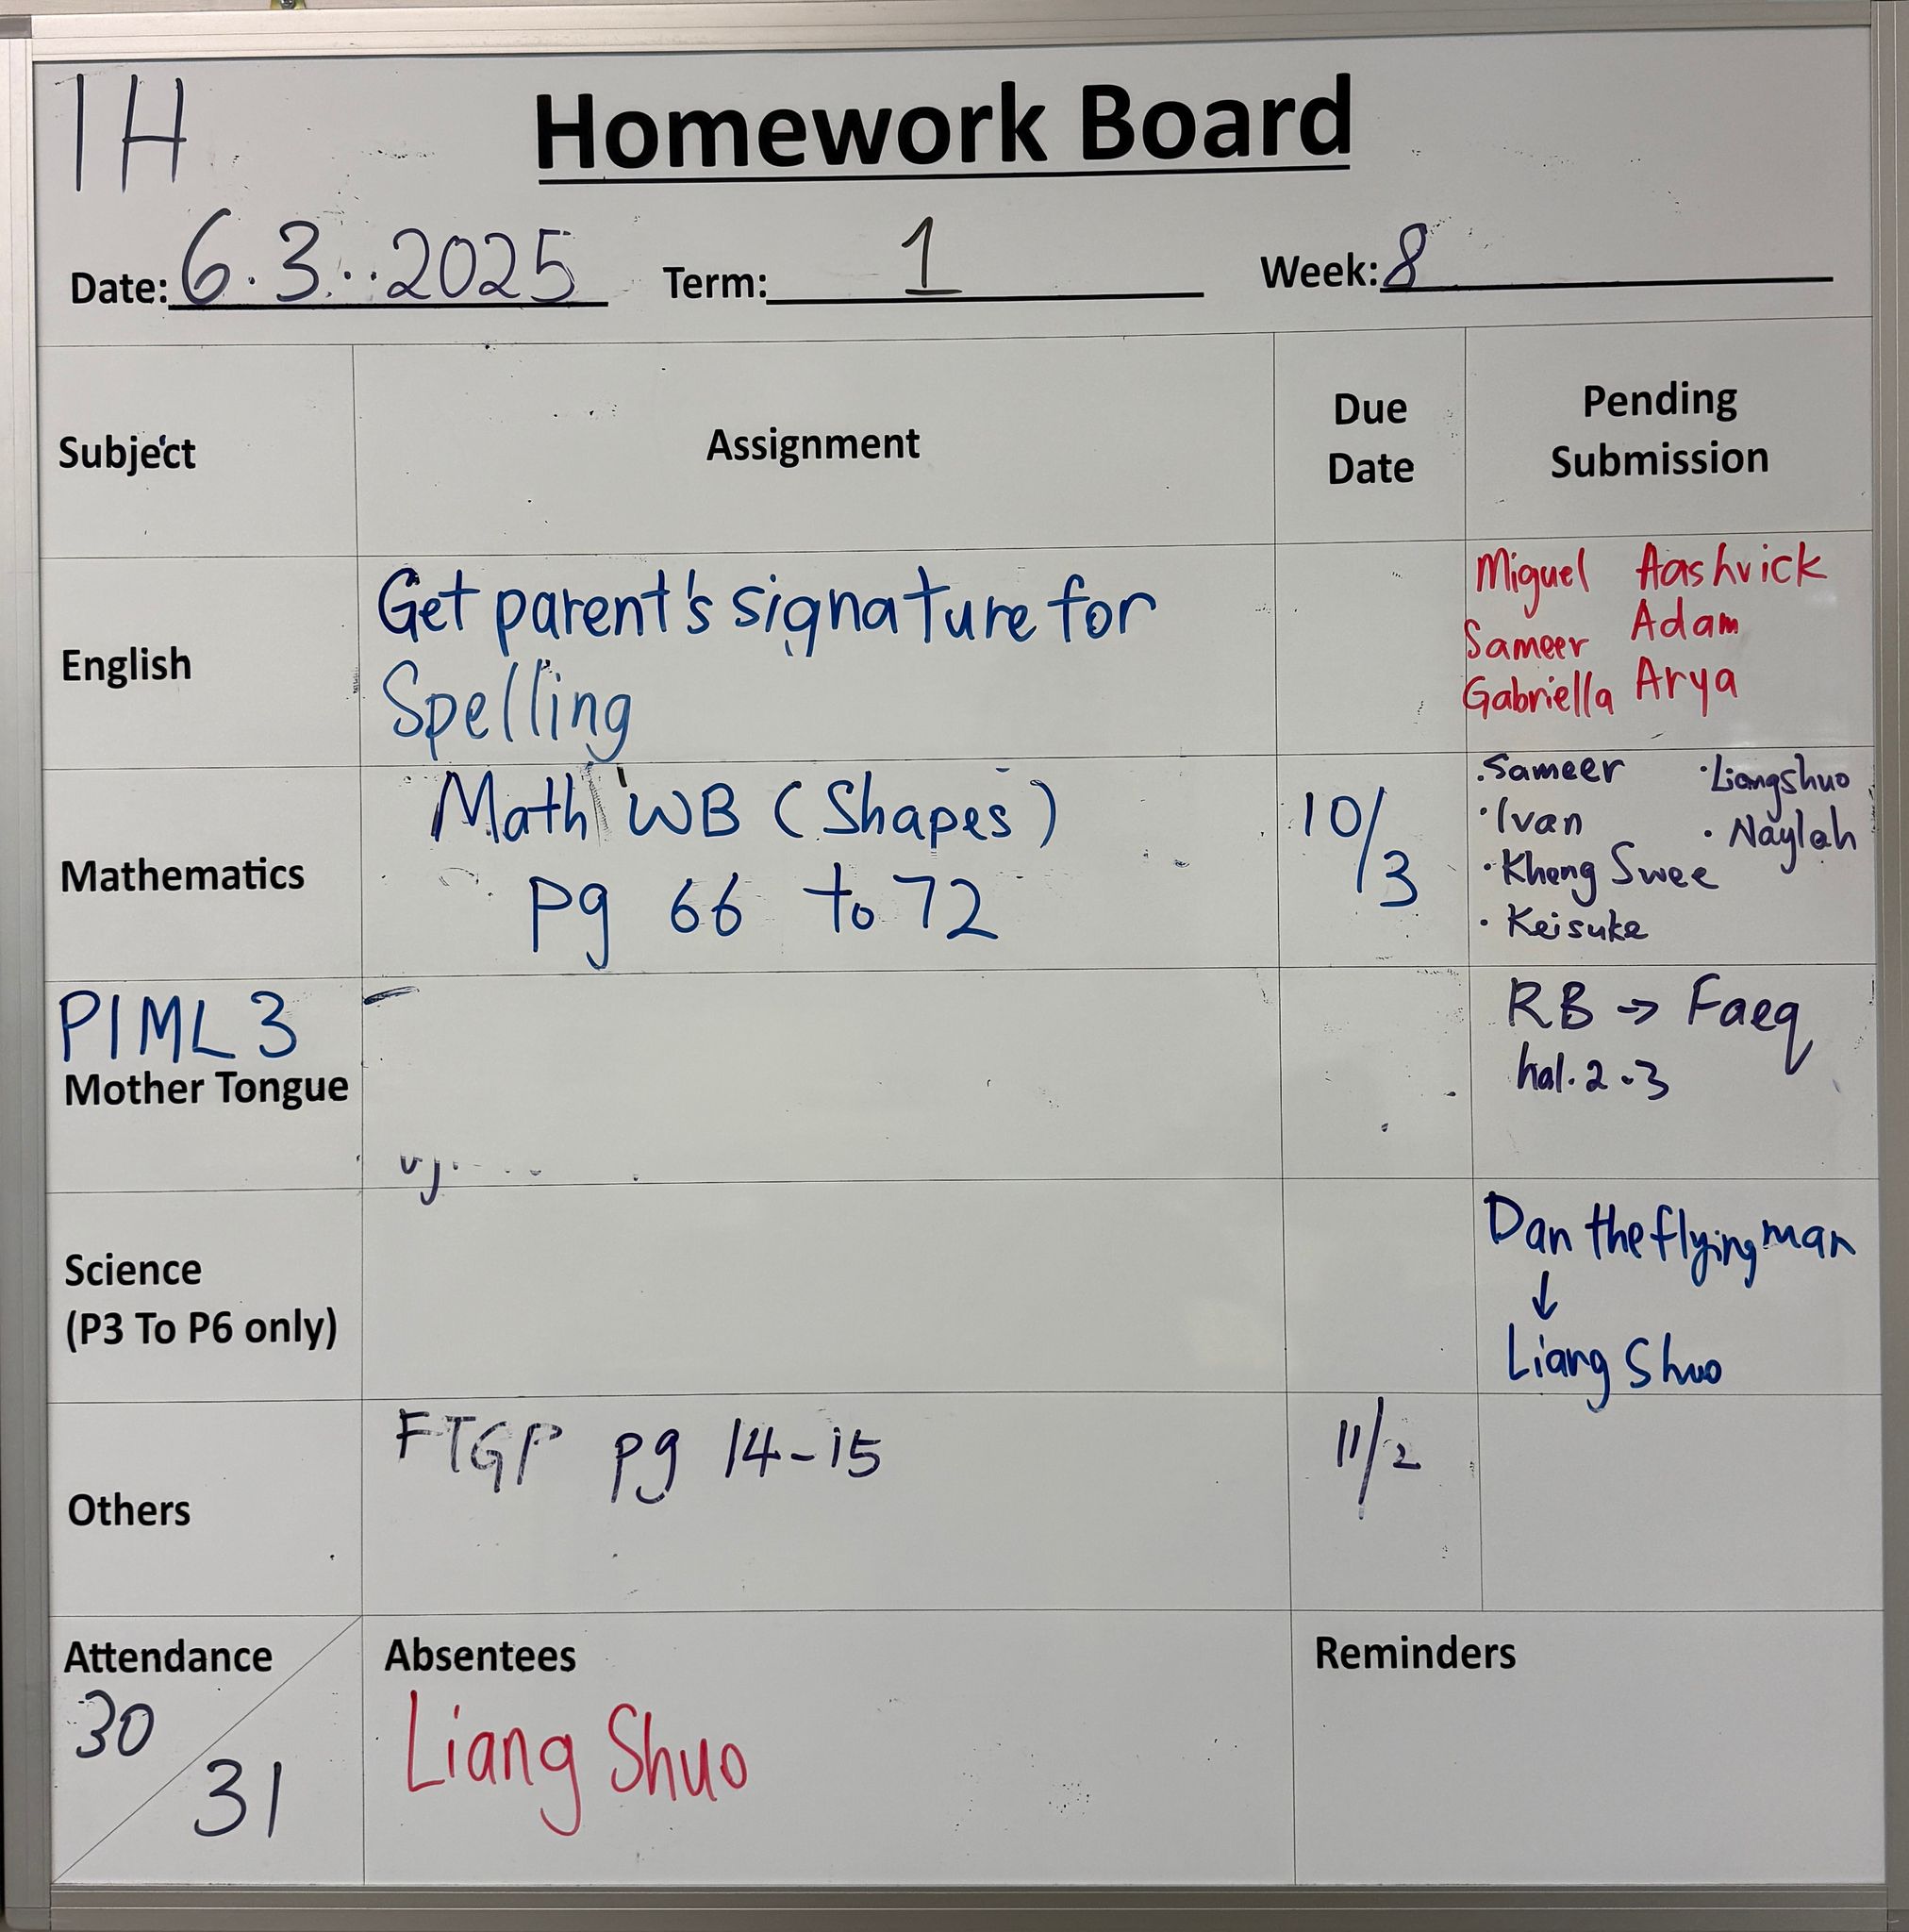 1H
Homework Board
Date: 6.3..2025 Term: 1 Week: 8
Subject Assignment Due Date Pending Submission
English
Get parent's signature for
Spelling
Miguel Aashvick
Sameer Adam
Gabriella Arya
Mathematics
Math WB (Shapes)
pg 66 to 72
10/3
·Sameer ·Liangshuo
·Ivan ·Naylah
·Kheng Swee
·Keisuke
PIML 3
Mother Tongue
RB → Faeq
hal. 2.3
Science
(P3 To P6 only)
Dan the flying man
↓
Liang Shuo
Others
FTGP pg 14-15
11/2
Attendance
30
31
Absentees
Liang Shuo
Reminders